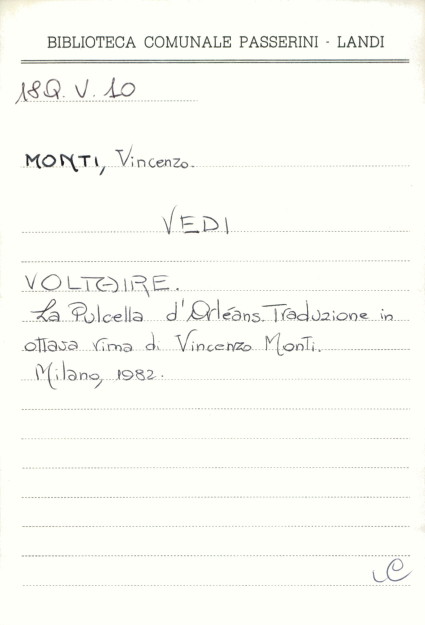 BIBLIOTECA COMUNALE PASSERINI - LANDI
18Q. V. 10
MONTI, Vincenzo.
VEDI
VOLTAIRE.
La Pulcella d'Orléans. Traduzione in
ottava rima di Vincenzo Monti.
Milano, 1982.